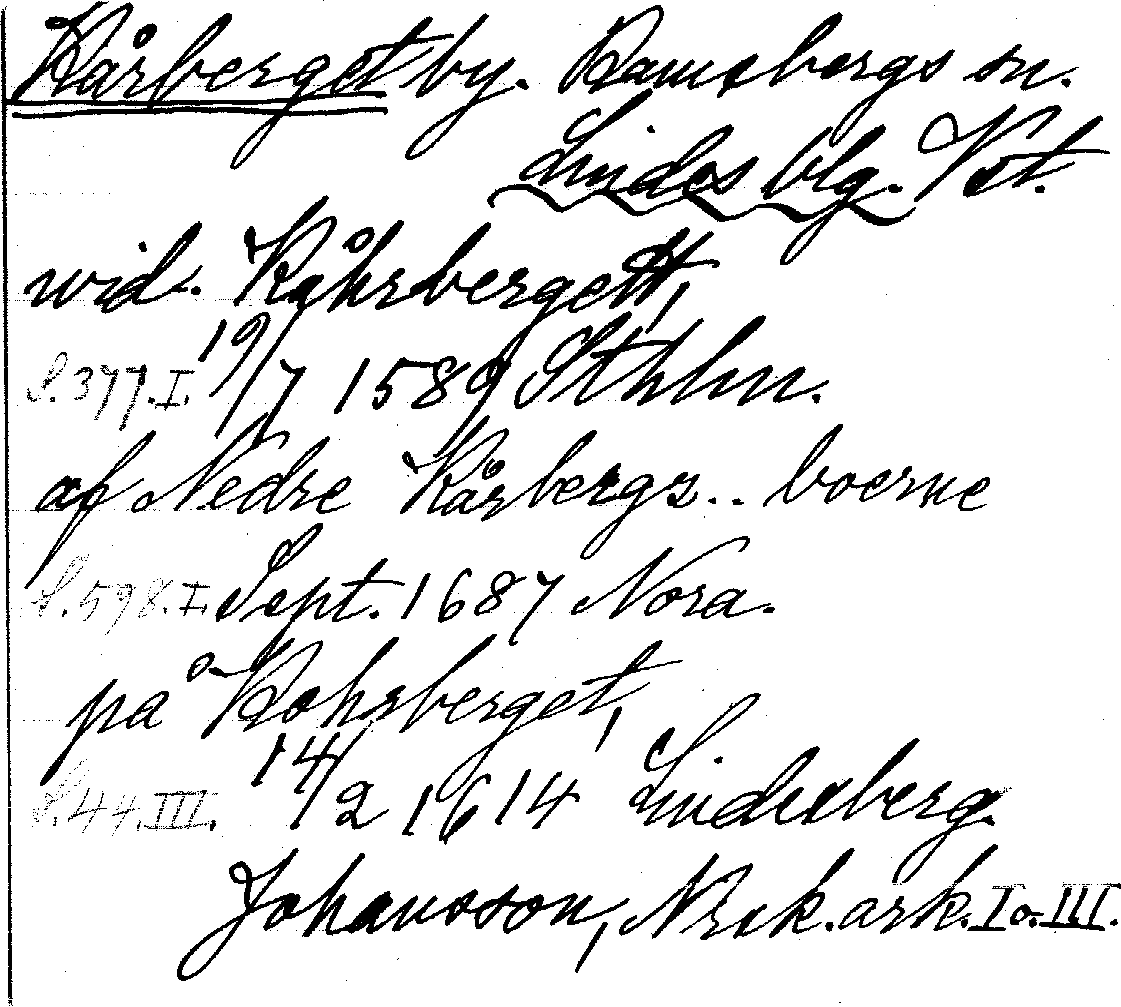 Kårberget by. Ramsbergs sn.
Lindes blg. Vst.
wid. Kåhrbergett,
S.377.I. 19/7 1589 Sthlm.
af Nedre Kårbergs.. boerne
S.598.I. Sept. 1687 Nora.
på Kohrberget,
S.44.III. 14/2 1614 Lindesberg.
Johansson, Nrik. ark. I o. III.